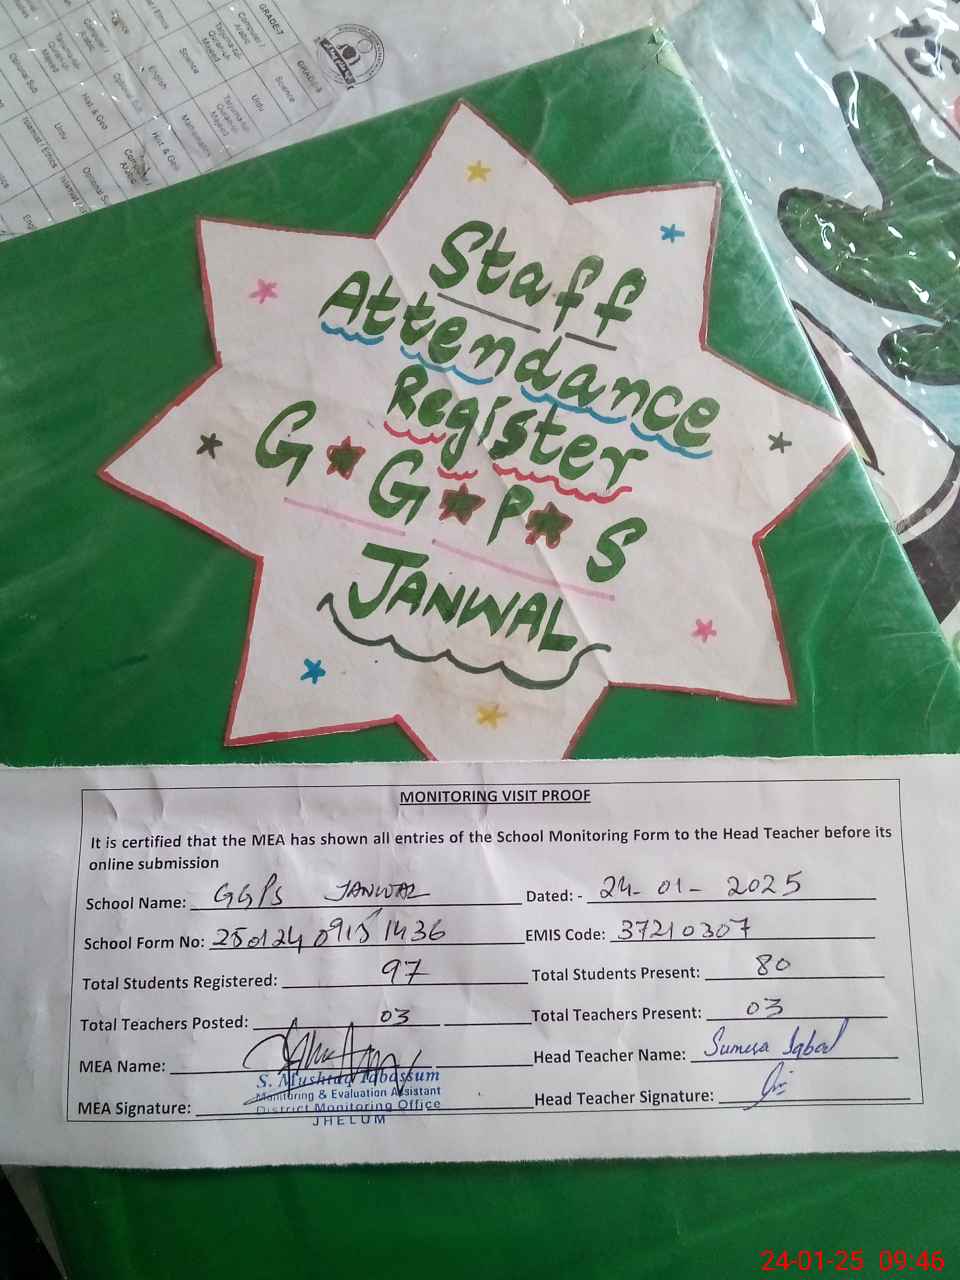 GRADE-7
GRADE-8
Computer / Arabic
Tarjuma-tul-Quran-ul-Majeed
Science
English
Urdu
Science
Tarjuma-tul-Quran-ul-Majeed
Mathematics
Hist. & Geo
Urdu
Hist. & Geo
Staff
Attendance
Register
G★G★P★S
JANWAL
MONITORING VISIT PROOF
It is certified that the MEA has shown all entries of the School Monitoring Form to the Head Teacher before its
online submission
School Name: GGPS JANWAL Dated: - 24-01-2025
School Form No: 25012409151436 EMIS Code: 37210307
Total Students Registered: 97 Total Students Present: 80
Total Teachers Posted: 03 Total Teachers Present: 03
MEA Name: Head Teacher Name: Sumera Iqbal
S. Mushtaq Tabassum
Monitoring & Evaluation Assistant
MEA Signature: District Monitoring Office Head Teacher Signature:
JHELUM
24-01-25 09:46